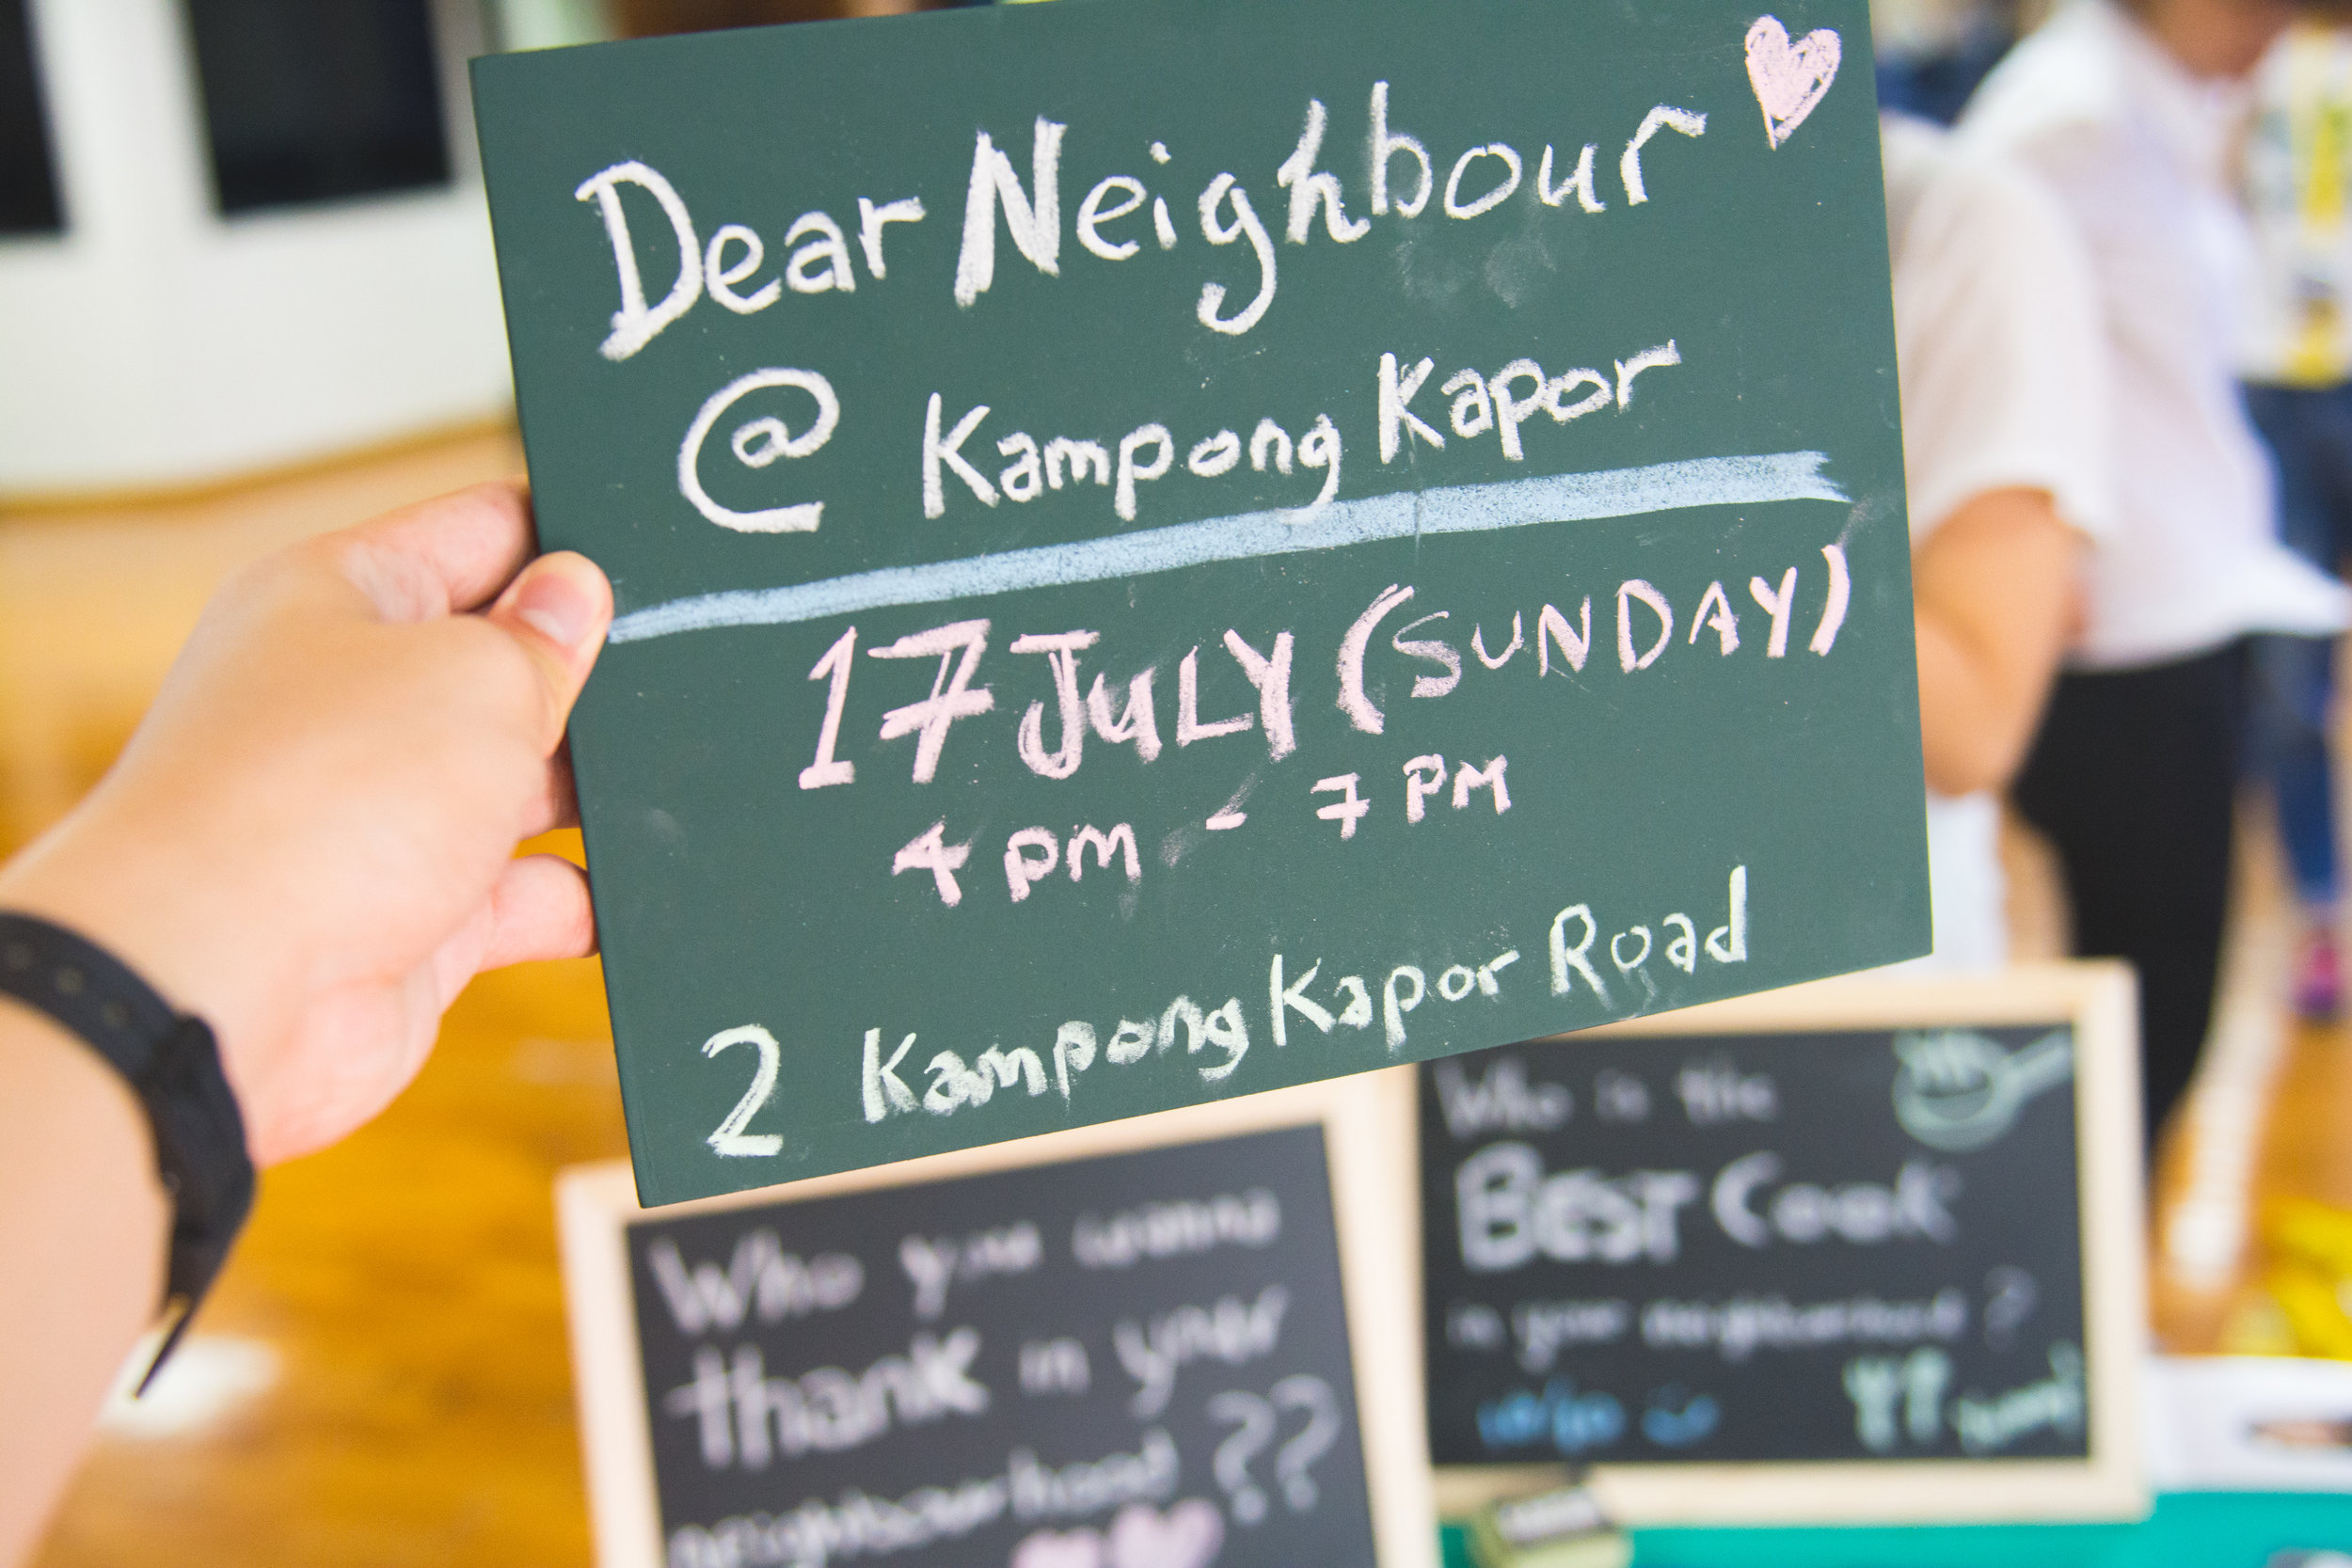 Dear Neighbour
@ Kampong Kapor
17 JULY (SUNDAY)
4 PM - 7 PM
2 Kampong Kapor Road
Who you wanna
thank in your
neighbourhood ??
Who is the
BEST Cook
in your neighbourhood ?